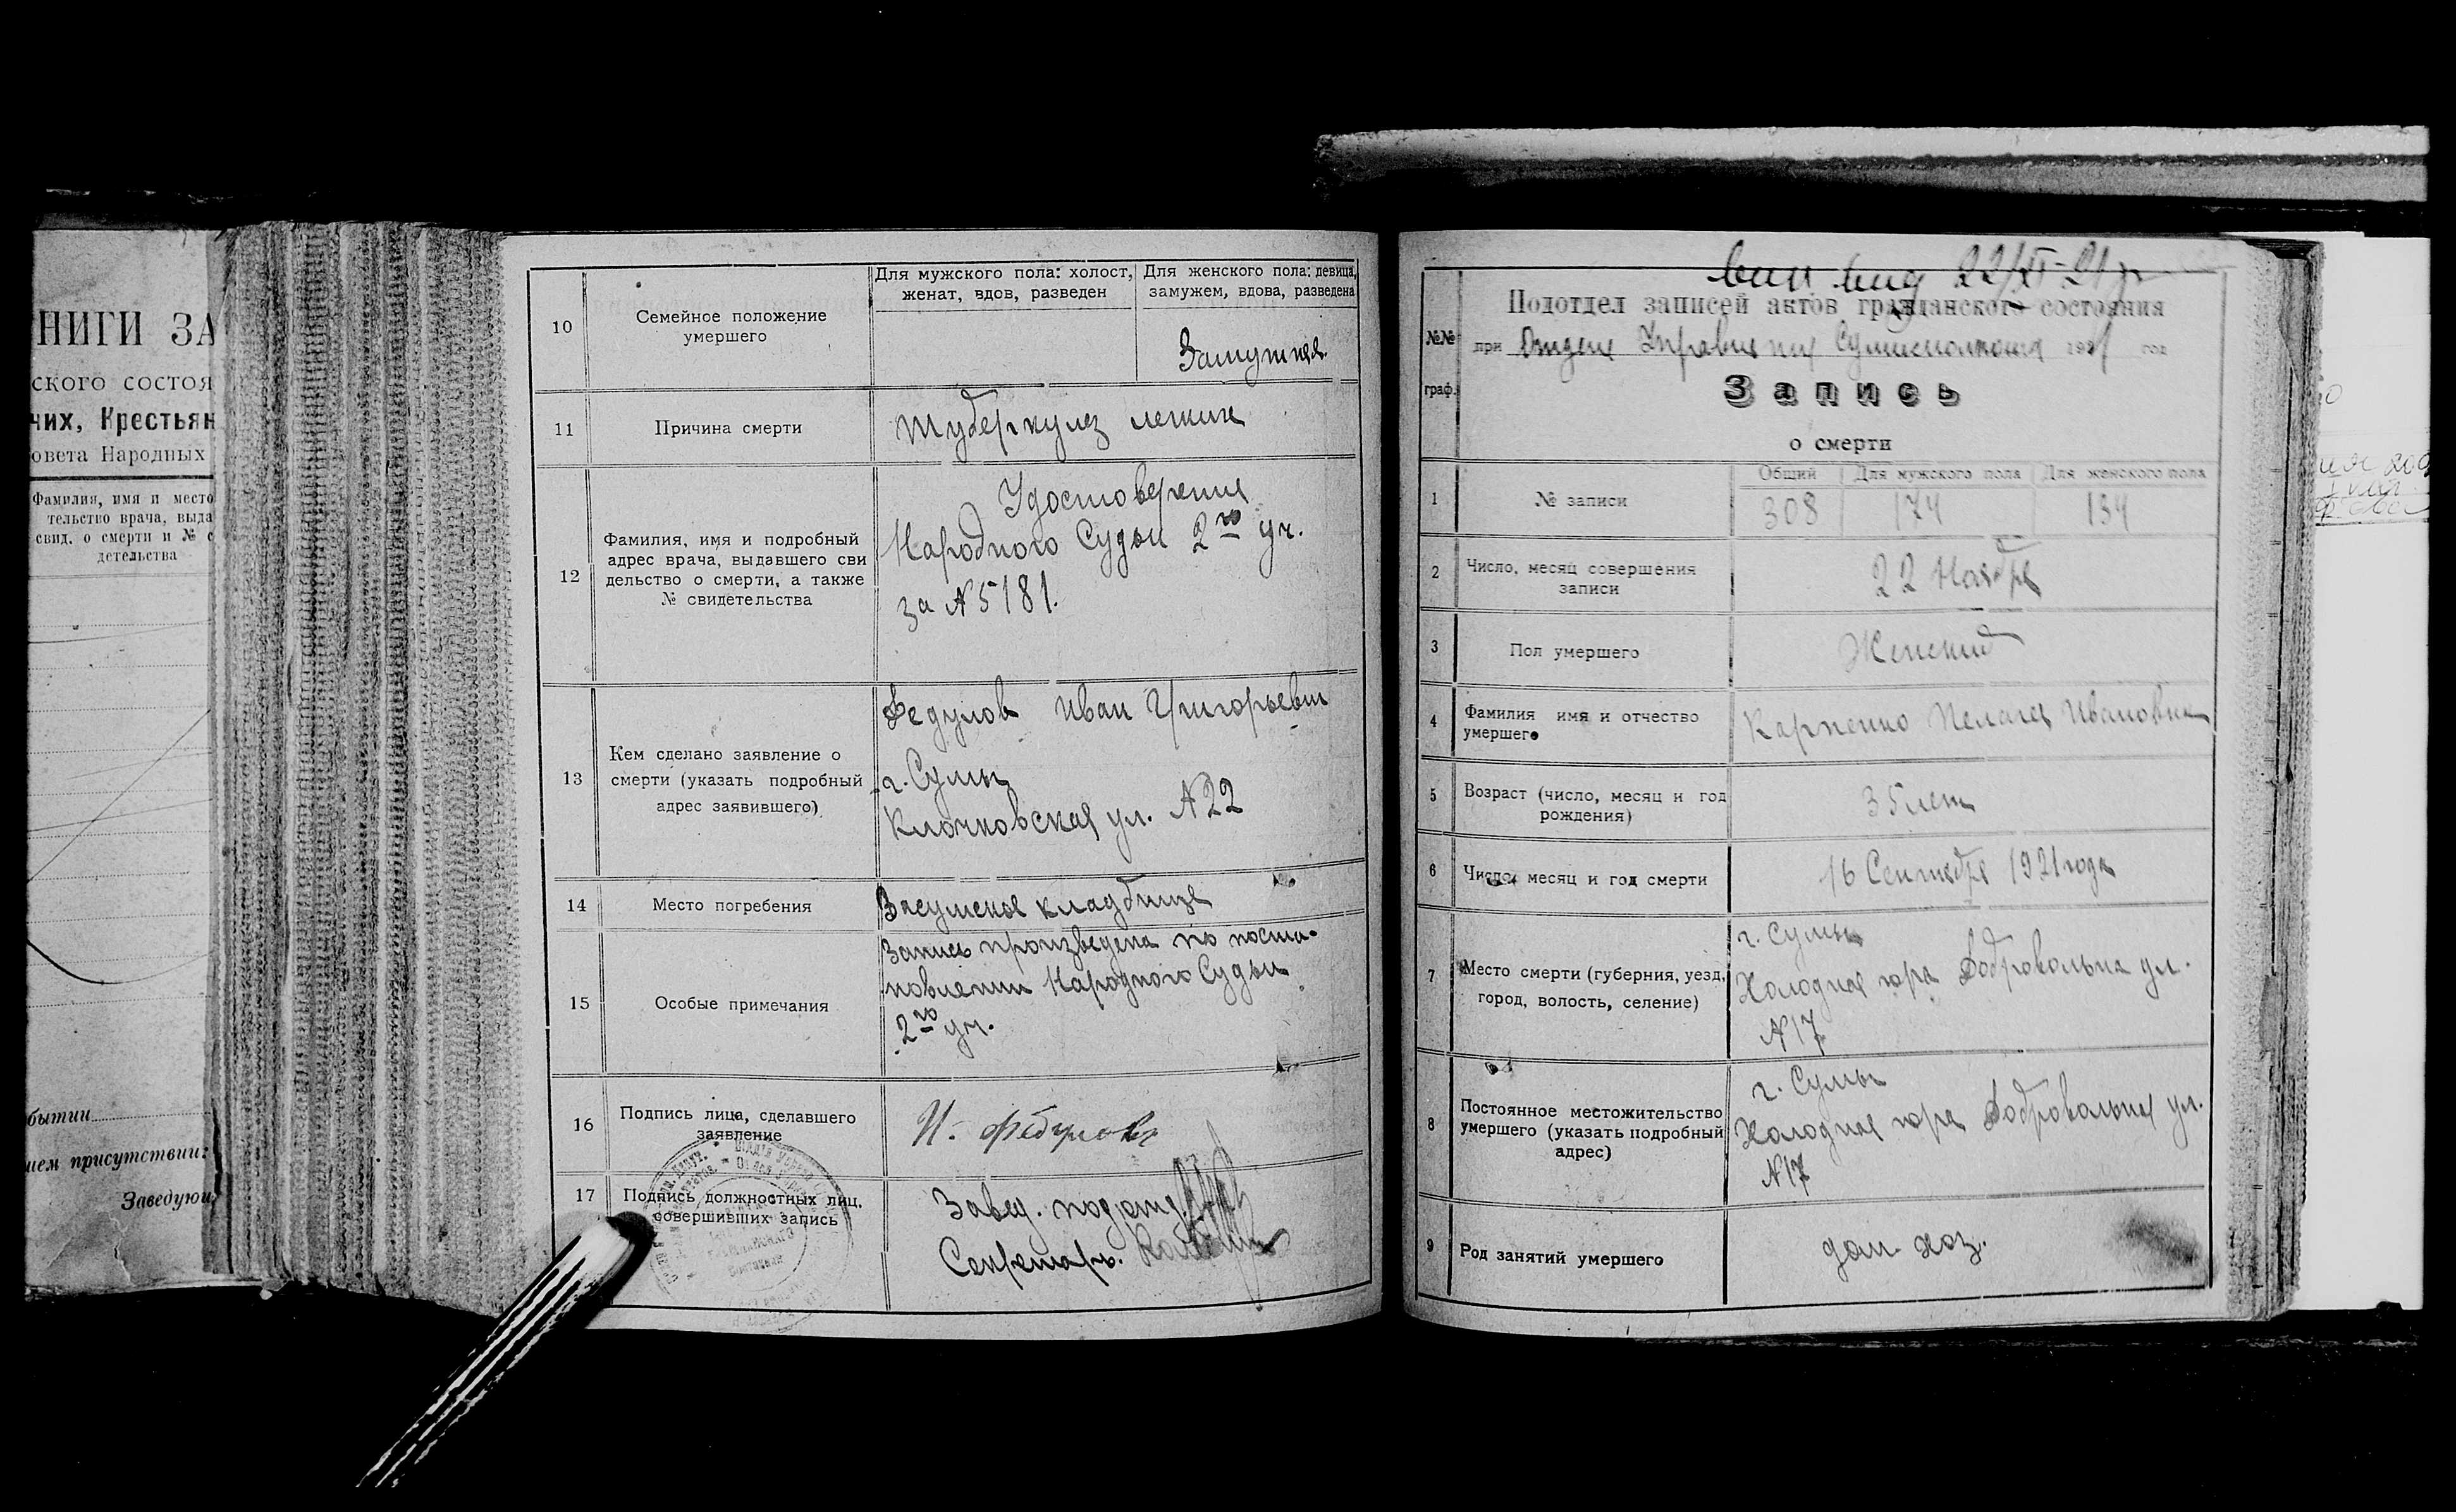 НИГИ ЗА
ского состоя
чих, Крестьян
овета Народных
Фамилия, имя и место
тельство врача, выда
свид. о смерти и № с
детельства
бытии
ием присутствии:
Заведующ
10
Семейное положение
умершего
Для мужского пола: холост,
женат, вдов, разведен
Для женского пола: девица,
замужем, вдова, разведена
Замужняя.
11
Причина смерти
туберкулез легких
12
Фамилия, имя и подробный
адрес врача, выдавшего сви
дельство о смерти, а также
№ свидетельства
Удостоверения
Народного Судьи 2го уч.
за №5181.
13
Кем сделано заявление о
смерти (указать подробный
адрес заявившего)
Федулов Иван Григорьевич
г. Сумы
Клочковская ул. №22
14
Место погребения
кладбище
15
Особые примечания
Запись произведена по поста-
новлении Народного Судьи
2го уч.
16
Подпись лица, сделавшего
заявление
И. Федулов
17
Подпись должностных лиц,
совершивших запись
Завед. подотд.
Секретарь.
вид 22/XI-21 г
Подотдел записей актов гражданского состояния
№№
граф.
при Отделе Управления 1921 год
Запись
о смерти
1
№ записи
Общий
Для мужского пола
Для женского пола
308
174
134
2
Число, месяц совершения
записи
22 Ноября
3
Пол умершего
Женский
4
Фамилия имя и отчество
умершего
Карпенко Пелагея Ивановна
5
Возраст (число, месяц и год
рождения)
35 лет
6
Число, месяц и год смерти
16 Сентября 1921 года
7
Место смерти (губерния, уезд,
город, волость, селение)
г. Сумы
Холодная гора Добровольна ул.
№17
8
Постоянное местожительство
умершего (указать подробный
адрес)
г. Сумы
Холодная гора Добровольная ул.
№17
9
Род занятий умершего
дом. хоз.